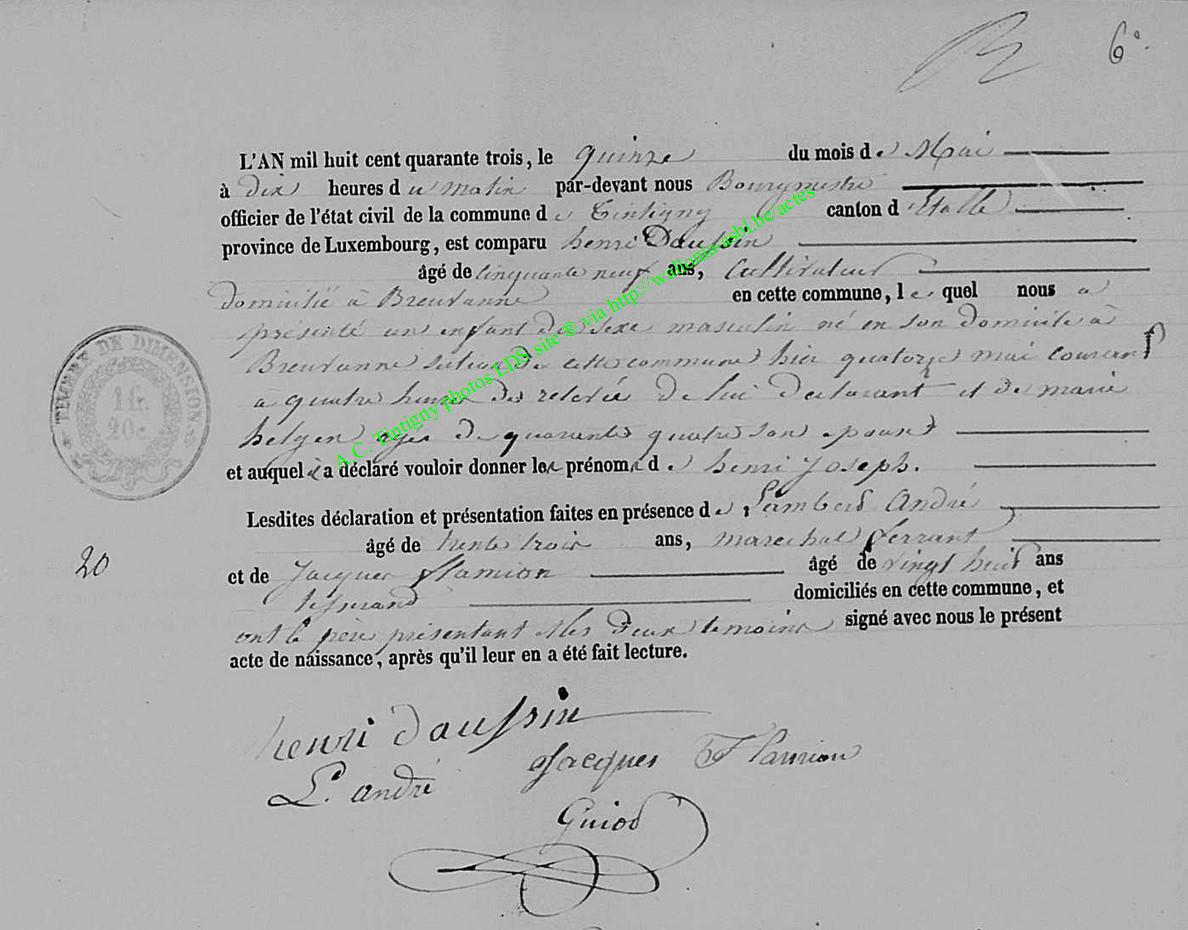 6°
L'AN mil huit cent quarante trois, le quinze du mois de Mai
à dix heures du matin par-devant nous Bourgmestre
officier de l'état civil de la commune de Tintigny canton d'Etalle
province de Luxembourg, est comparu henri Daussin
âgé de cinquante neuf ans, Cultivateur
domicilié à Breuvanne en cette commune, le quel nous a
présenté un enfant de sexe masculin né en son domicile à
Breuvanne section de cette commune hier quatorze mai courant
à quatre heures de relevée de lui déclarant et de marie
helgen agée de quarante quatre son épouse
et auquel il a déclaré vouloir donner les prénoms de henri Joseph.
Lesdites déclaration et présentation faites en présence de Lambert André
âgé de trente trois ans, marechal ferrant
20
et de Jacques flamion âgé de vingt huit ans
tisserand domiciliés en cette commune, et
ont le père présentant et les deux témoins signé avec nous le présent
acte de naissance, après qu'il leur en a été fait lecture.
henri daussin
Jacques Flamion
L. andré
Guiot
TIMBRE DE DIMENSION
1 fr.
20 c
A.C. Tintigny photos LDS, site ® via http://wallonia-asbl.be/actes